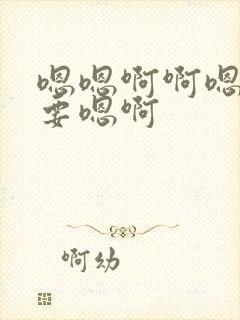 嗯嗯啊啊嗯
要嗯啊
啊幼